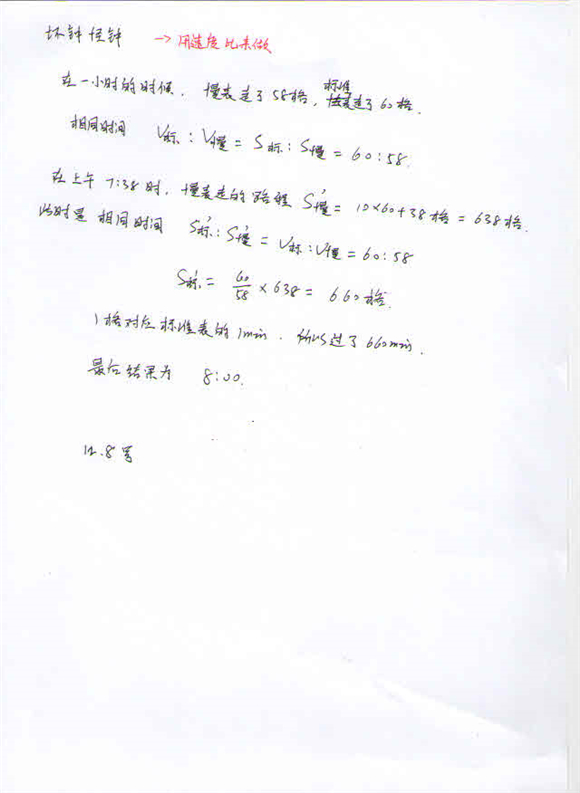 坏钟怪钟 → 用速度比来做
在一小时的时候, 慢表走了58格, 标准表走了60格.
相同时间 V标:V慢 = S标:S慢 = 60:58.
在上午 7:38 时, 慢表走的路程 S'慢 = 10×60+38格 = 638格.
此时是 相同时间 S'标:S'慢 = V标:V慢 = 60:58
S'标 = 60/58 × 638 = 660格.
1格对应标准表的1min. 所以过了660min.
最后结果为 8:00.
12.8